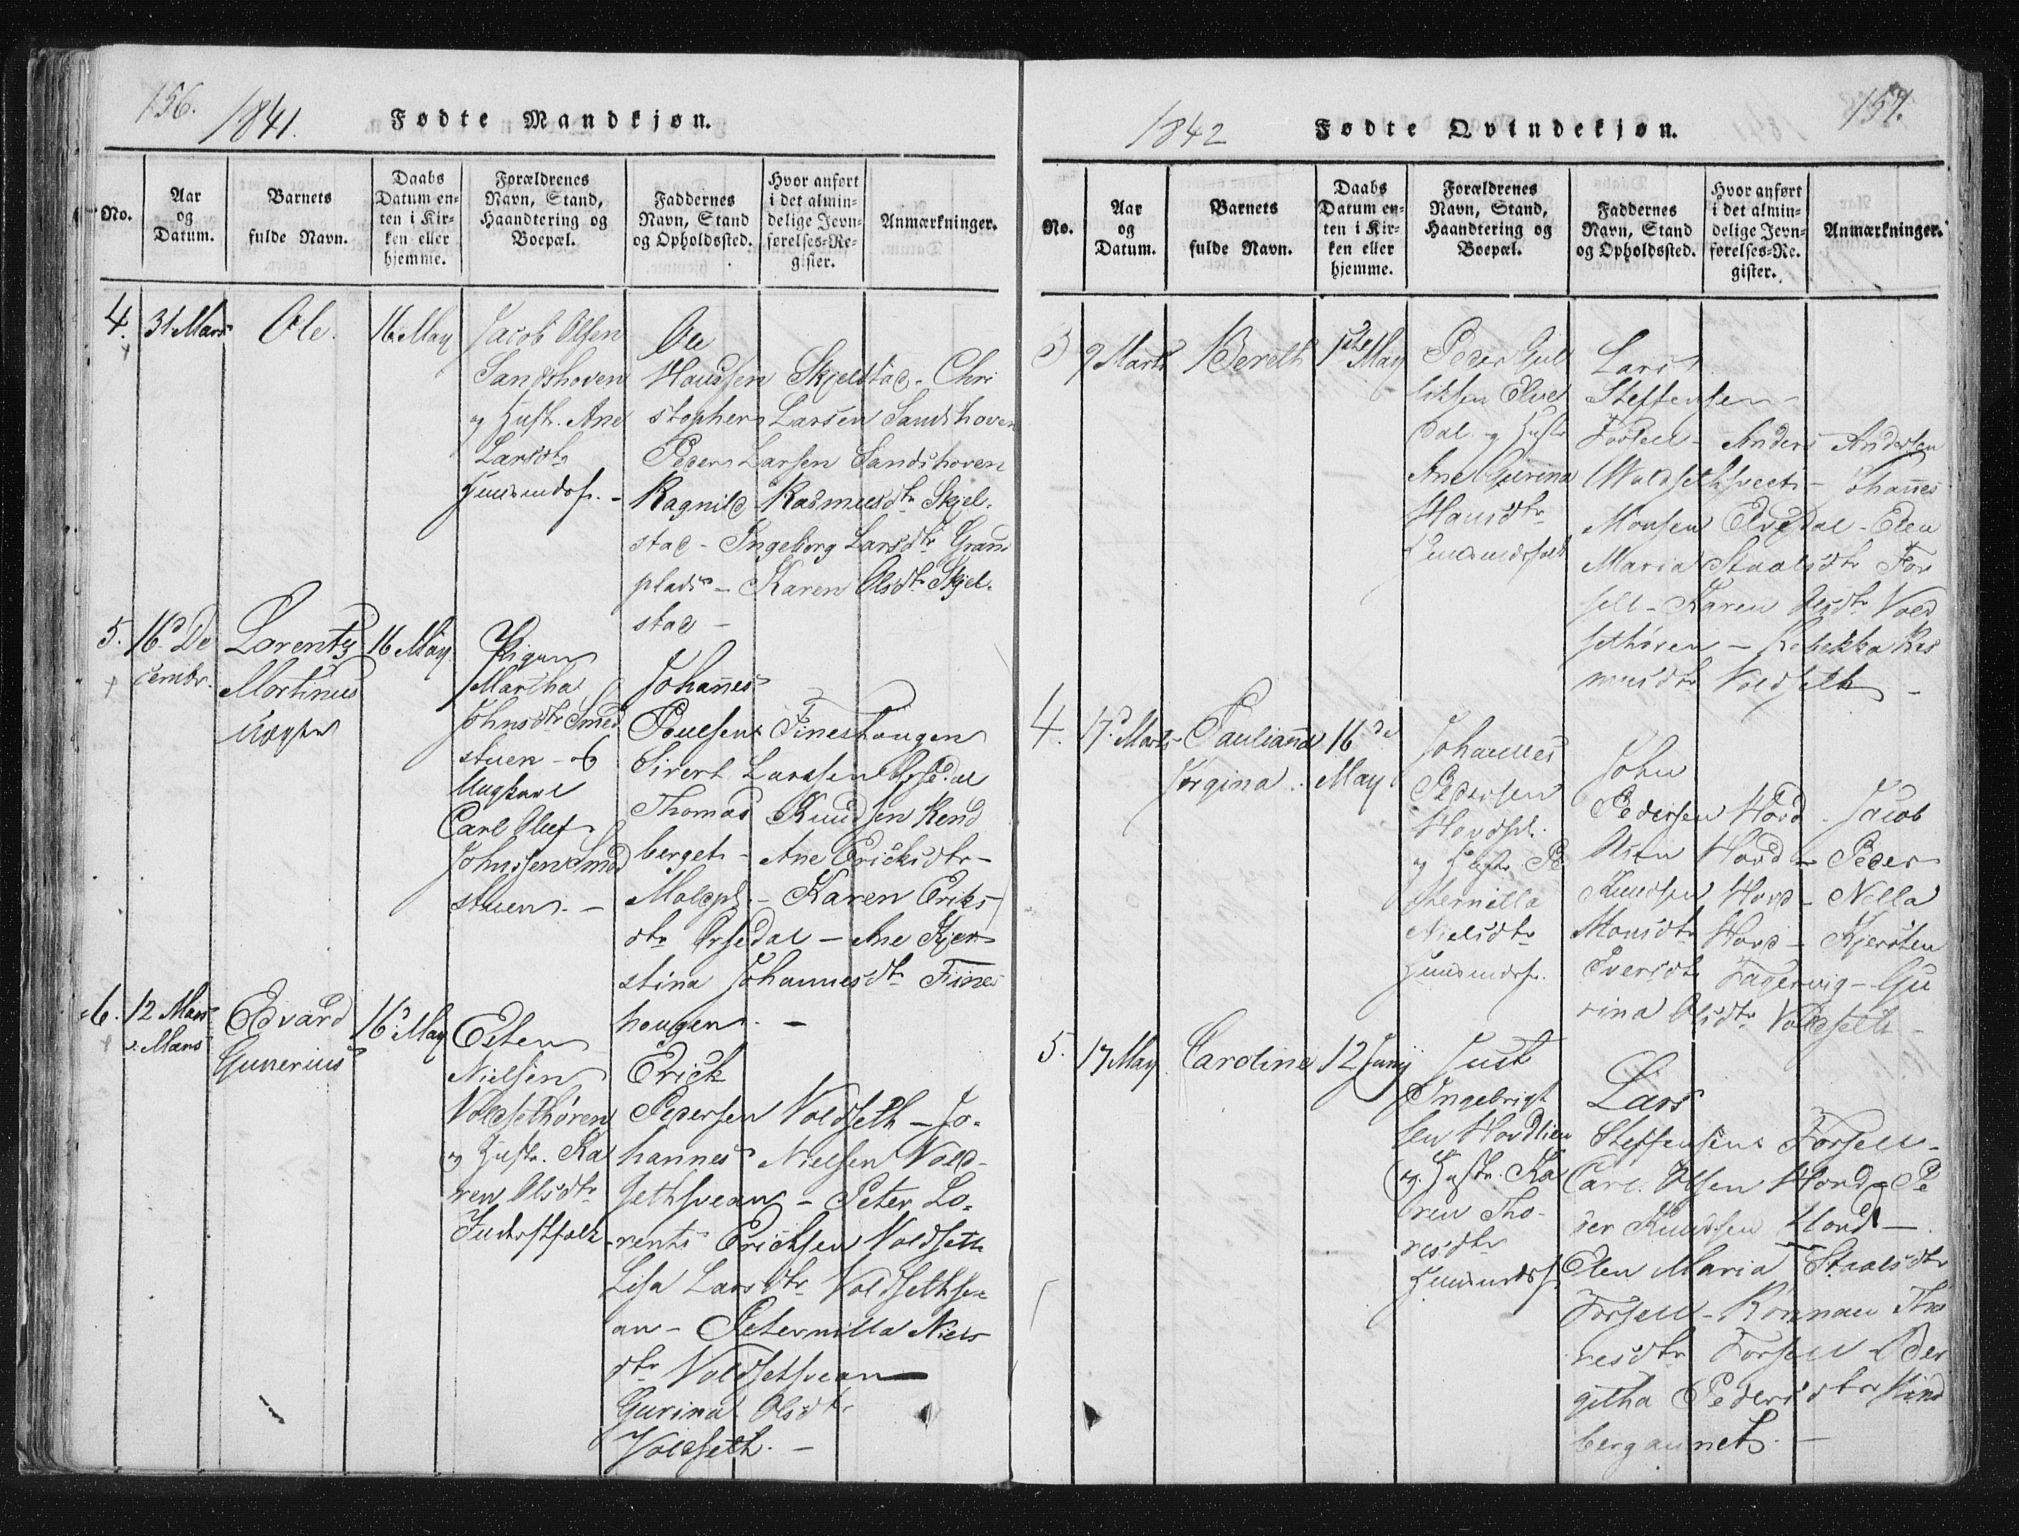 156.
1841.
Fødte Mandkjøn.
No.
Aar og Datum.
Barnets fulde Navn.
Daabs Datum enten i Kirken eller hjemme.
Forældrenes Navn, Stand, Haandtering og Boepæl.
Faddernes Navn, Stand og Opholdssted.
Hvor anført i det almindelige Jevnførelses-Register.
Anmærkninger.
4.
31 Mars
Ole.
16 May
Jacob Olsen
Sandshoven
og Hustr. Ane
Larsdtr
Huusmdsf. -
Ole
Hanssen Skjelstad - Chri
stopher Larsen Sandshoven
Peder Larsen Sandshoven
Ragnild Rasmusdtr Skjel-
stad - Ingeborg Larsdtr Gran
plads - Karen Olsdtr Skjel-
stad -
5.
16 De
cembr.
Lorents
Martinus
uægte
16 May
Pigen
Martha
Johnsdtr Smed
stuen - og
Ungkarl
Carl Oluf
Johnssen Smed
stuen. -
Johannes
Poulsen Fineshaugen
Sivert Larssen Ørsedal
Thomas Knudsen Rend
berget - Ane Ericksdtr -
Moldpl. - Karen Eriks-
dtr Ørsedal - Ane Kjer-
stina Johannesdtr Fines
hougen. -
6.
12 Mars
Mars
Edvard
Gunerius
16 May
Esten
Nielsen
Voldsethøren
og Hustr. Ka
ren Olsdtr
Inderstfolk
Erick
Pedersen Voldseth - Jo-
hannes Nielsen Vold-
sethsvean - Peter Lo-
rents Erichsen Voldseth
Lisa Larsdtr Voldsethsve
an - Peternilla Niels
dtr Voldsetsvean
Gurina Olsdtr
Voldseth. -
157.
1842
Fødte Qvindekjøn.
No.
Aar og Datum.
Barnets fulde Navn.
Daabs Datum enten i Kirken eller hjemme.
Forældrenes Navn, Stand, Haandtering og Boepæl.
Faddernes Navn, Stand og Opholdssted.
Hvor anført i det almindelige Jevnførelses-Register.
Anmærkninger.
3
9 Marts
Bereth
May
Peder Gul
liksen Elve
dal. og Hustr
Ane Gurina
Hansdtr
Huusmdsfolk
Lars
Steffensen -
Forsell - Anders Andersen
Woldsethsveet - Johannes
Monsen Elvedal - Elen
Maria Staalsdtr For
sell - Karen Olsdtr Vold
sethøren - Rebekka Ras
musdtr Voldseth -
4.
17 Marts
Pauliana
Jørgina.
16de
May
Johannes
Pedersen
Hovdpl.
og Hustr Pe
ternilla
Nielsdtr
Huusmdsf.
John
Pedersen Hovd - Jacob
Olsen Hovd - Peder
Knudsen Hovd - Nella
Monsdtr Hovd - Kjersten
Iversdtr Fagervig - Gu
rina Olsdtr Voldseth -
5.
17 May
Caroline
12 Junj
Just
Ingebrigt
sen Hovdlien
og. Hustr. Ka
ren Tho-
resdtr
Huusmdsf.
Lars
Steffensen Forsell -
Carl Olsen Hovd - Pe
der Knudsen Hovd -
Elen Maria Staalsdtr
Forsell - Rønnau Tho
resdtr Forsell - Ber
githa Pedersdtr Rind
bergaunet. -